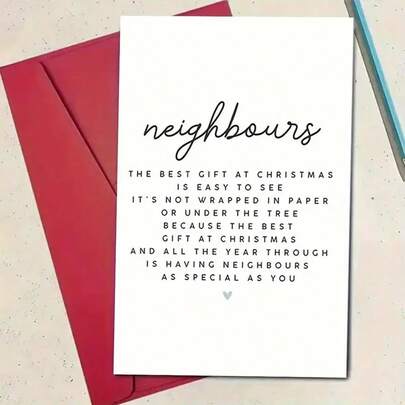 neighbours
THE BEST GIFT AT CHRISTMAS
IS EASY TO SEE
IT'S NOT WRAPPED IN PAPER
OR UNDER THE TREE
BECAUSE THE BEST
GIFT AT CHRISTMAS
AND ALL THE YEAR THROUGH
IS HAVING NEIGHBOURS
AS SPECIAL AS YOU